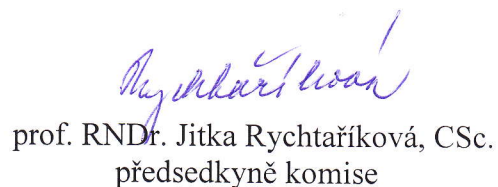 Rychtaříková
prof. RNDr. Jitka Rychtaříková, CSc.
předsedkyně komise